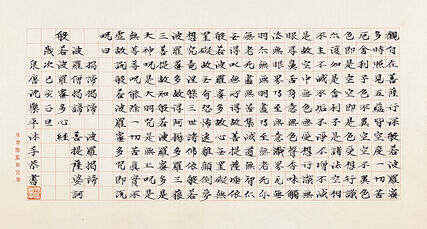 觀自在菩薩行深般若波羅蜜
多時照見五蘊皆空度一切苦
厄舍利子色不異空空不異色
色即是空空即是色受想行識
亦復如是舍利子是諸法空相
不生不滅不垢不淨不增不減
是故空中無色無受想行識無
眼耳鼻舌身意無色聲香味觸
法無眼界乃至無意識界無無
明亦無無明盡乃至無老死亦
無老死盡無苦集滅道無智亦
無得以無所得故菩提薩埵依
般若波羅蜜多故心無罣礙無
罣礙故無有恐怖遠離顛倒夢
想究竟涅槃三世諸佛依般若
波羅蜜多故得阿耨多羅三藐
三菩提故知般若波羅蜜多是
大神呪是大明呪是無上呪是
無等等呪能除一切苦真實不
虛故說般若波羅蜜多呪即說
呪曰
揭諦揭諦 波羅揭諦
波羅僧揭諦 菩提薩婆訶
般若波羅蜜多心經
歲次己亥旦
泉唐沈樂平沐手恭書